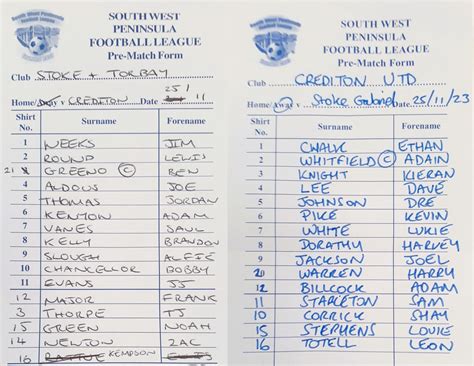 SOUTH WEST
PENINSULA
FOOTBALL LEAGUE
Pre-Match Form
Club STOKE + TORBAY
Home/Away v CREDITON Date 25/11
Shirt No. Surname Forename
1 WEEKS JIM
2 ROUND LEWIS
21 GREENO (C) BEN
4 ALDOUS JOE
5 THOMAS JORDAN
6 KENYON ADAM
7 VANES SAUL
8 KELLY BRANDON
9 SLOUGH ALFIE
10 CHANCELLOR BOBBY
11 EVANS JJ
12 MAJOR FRANK
3 THORPE TJ
15 GREEN NOAH
14 NEWTON ZAC
16 KEMPSON
SOUTH WEST
PENINSULA
FOOTBALL LEAGUE
Pre-Match Form
Club CREDITON UTD
Home/Away v Stoke Gabriel Date 25/11/23
Shirt No. Surname Forename
1 CHALK ETHAN
2 WHITFIELD (C) ADAIN
3 KNIGHT KIERAN
4 LEE DAVE
5 JOHNSON DRE
6 PIKE KEVIN
7 WHITE LUKIE
8 DORATHY HARVEY
9 JACKSON JOEL
20 WARREN HARRY
12 BILLCOCK ADAM
11 STAPLETON SAM
10 CORRICK SHAY
15 STEPHENS LOUIE
16 TOTELL LEON